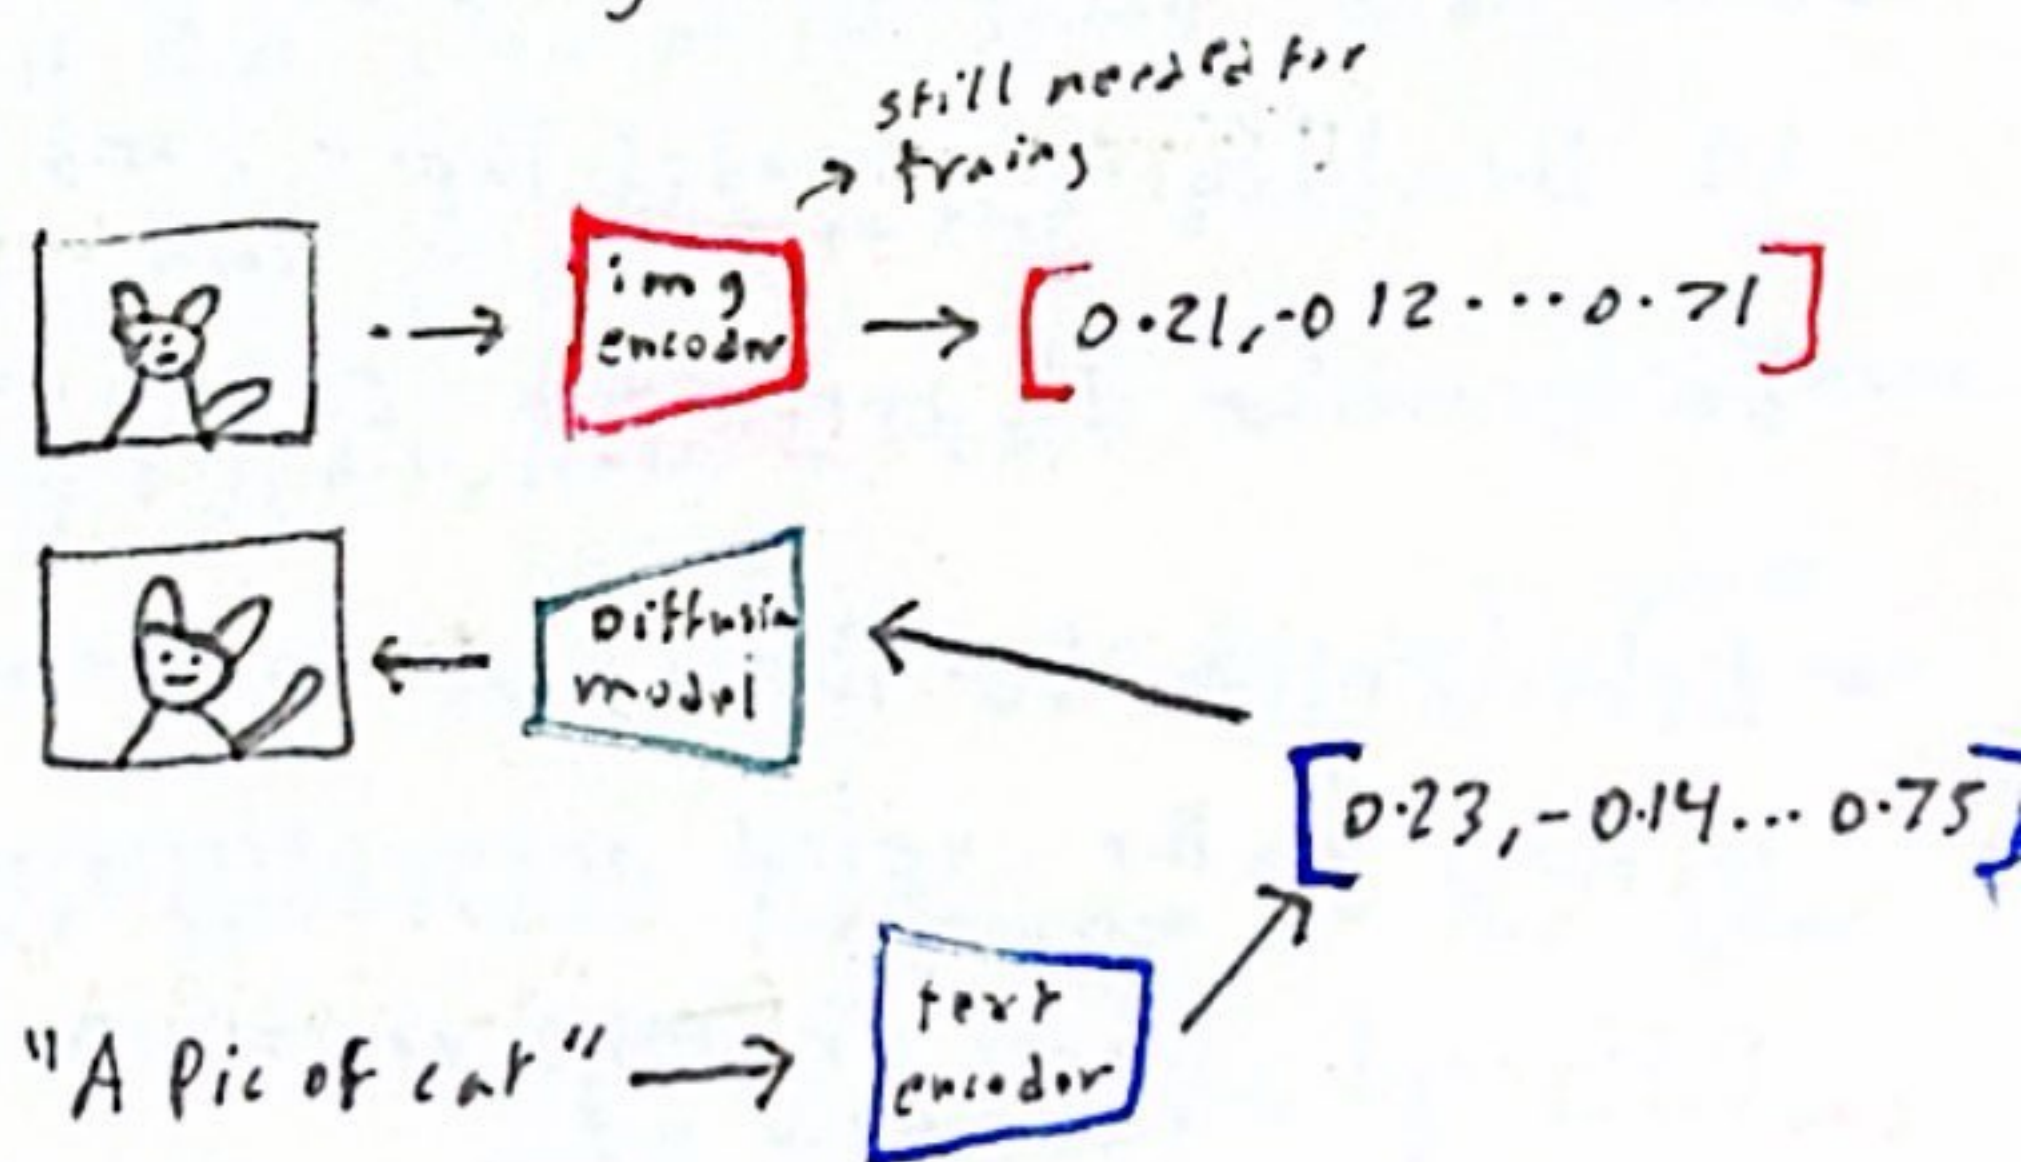 still needed for
traing
img
encoder
[0.21,-0 12...0.71]
Diffusion
model
[0.23,-0.14...0.75]
"A Pic of cat"
text
encoder